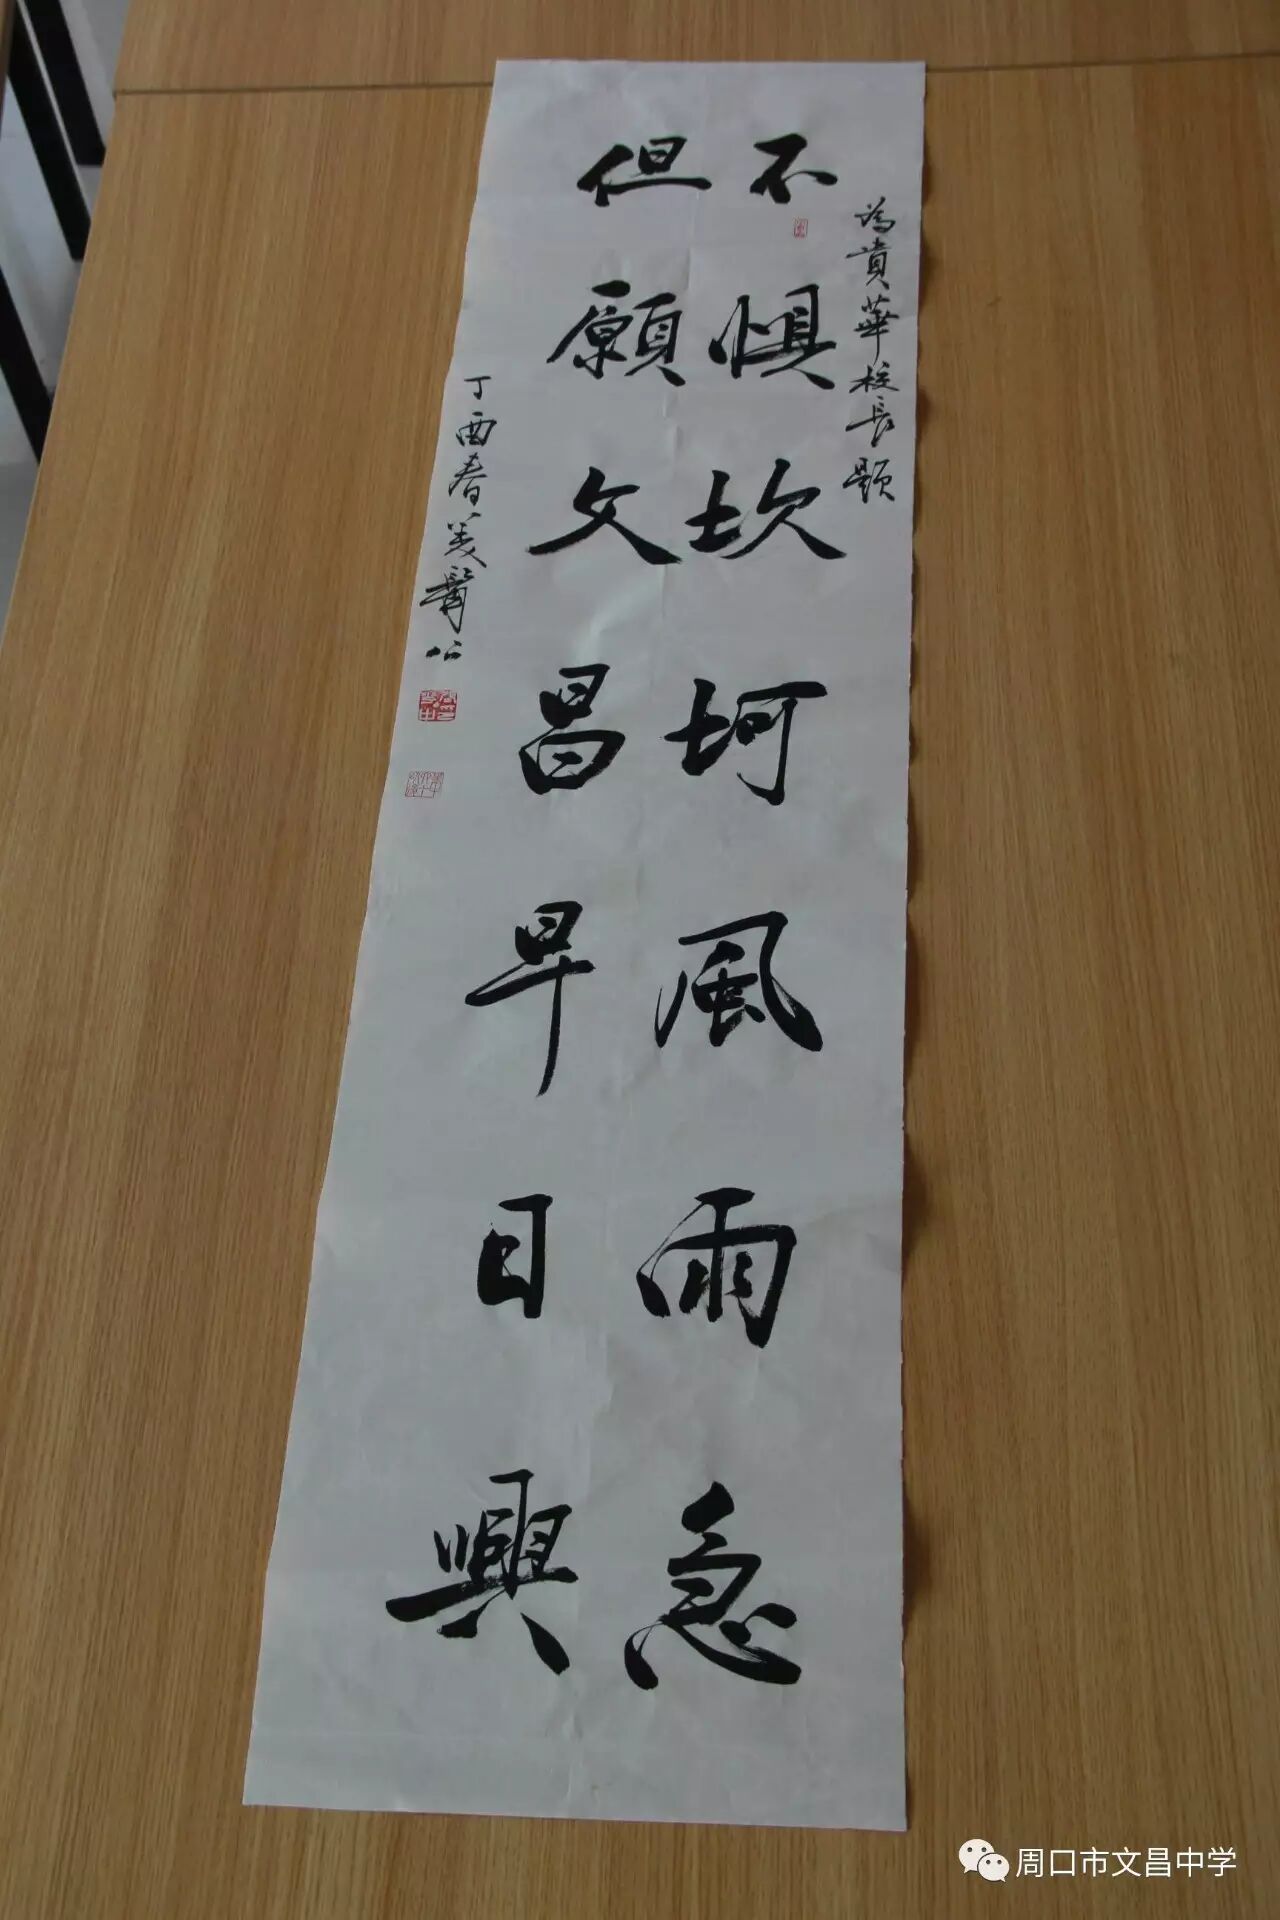 為貴華校長題
不懼坎坷風雨急
但願文昌早日興
丁酉春美髯公
周口市文昌中学